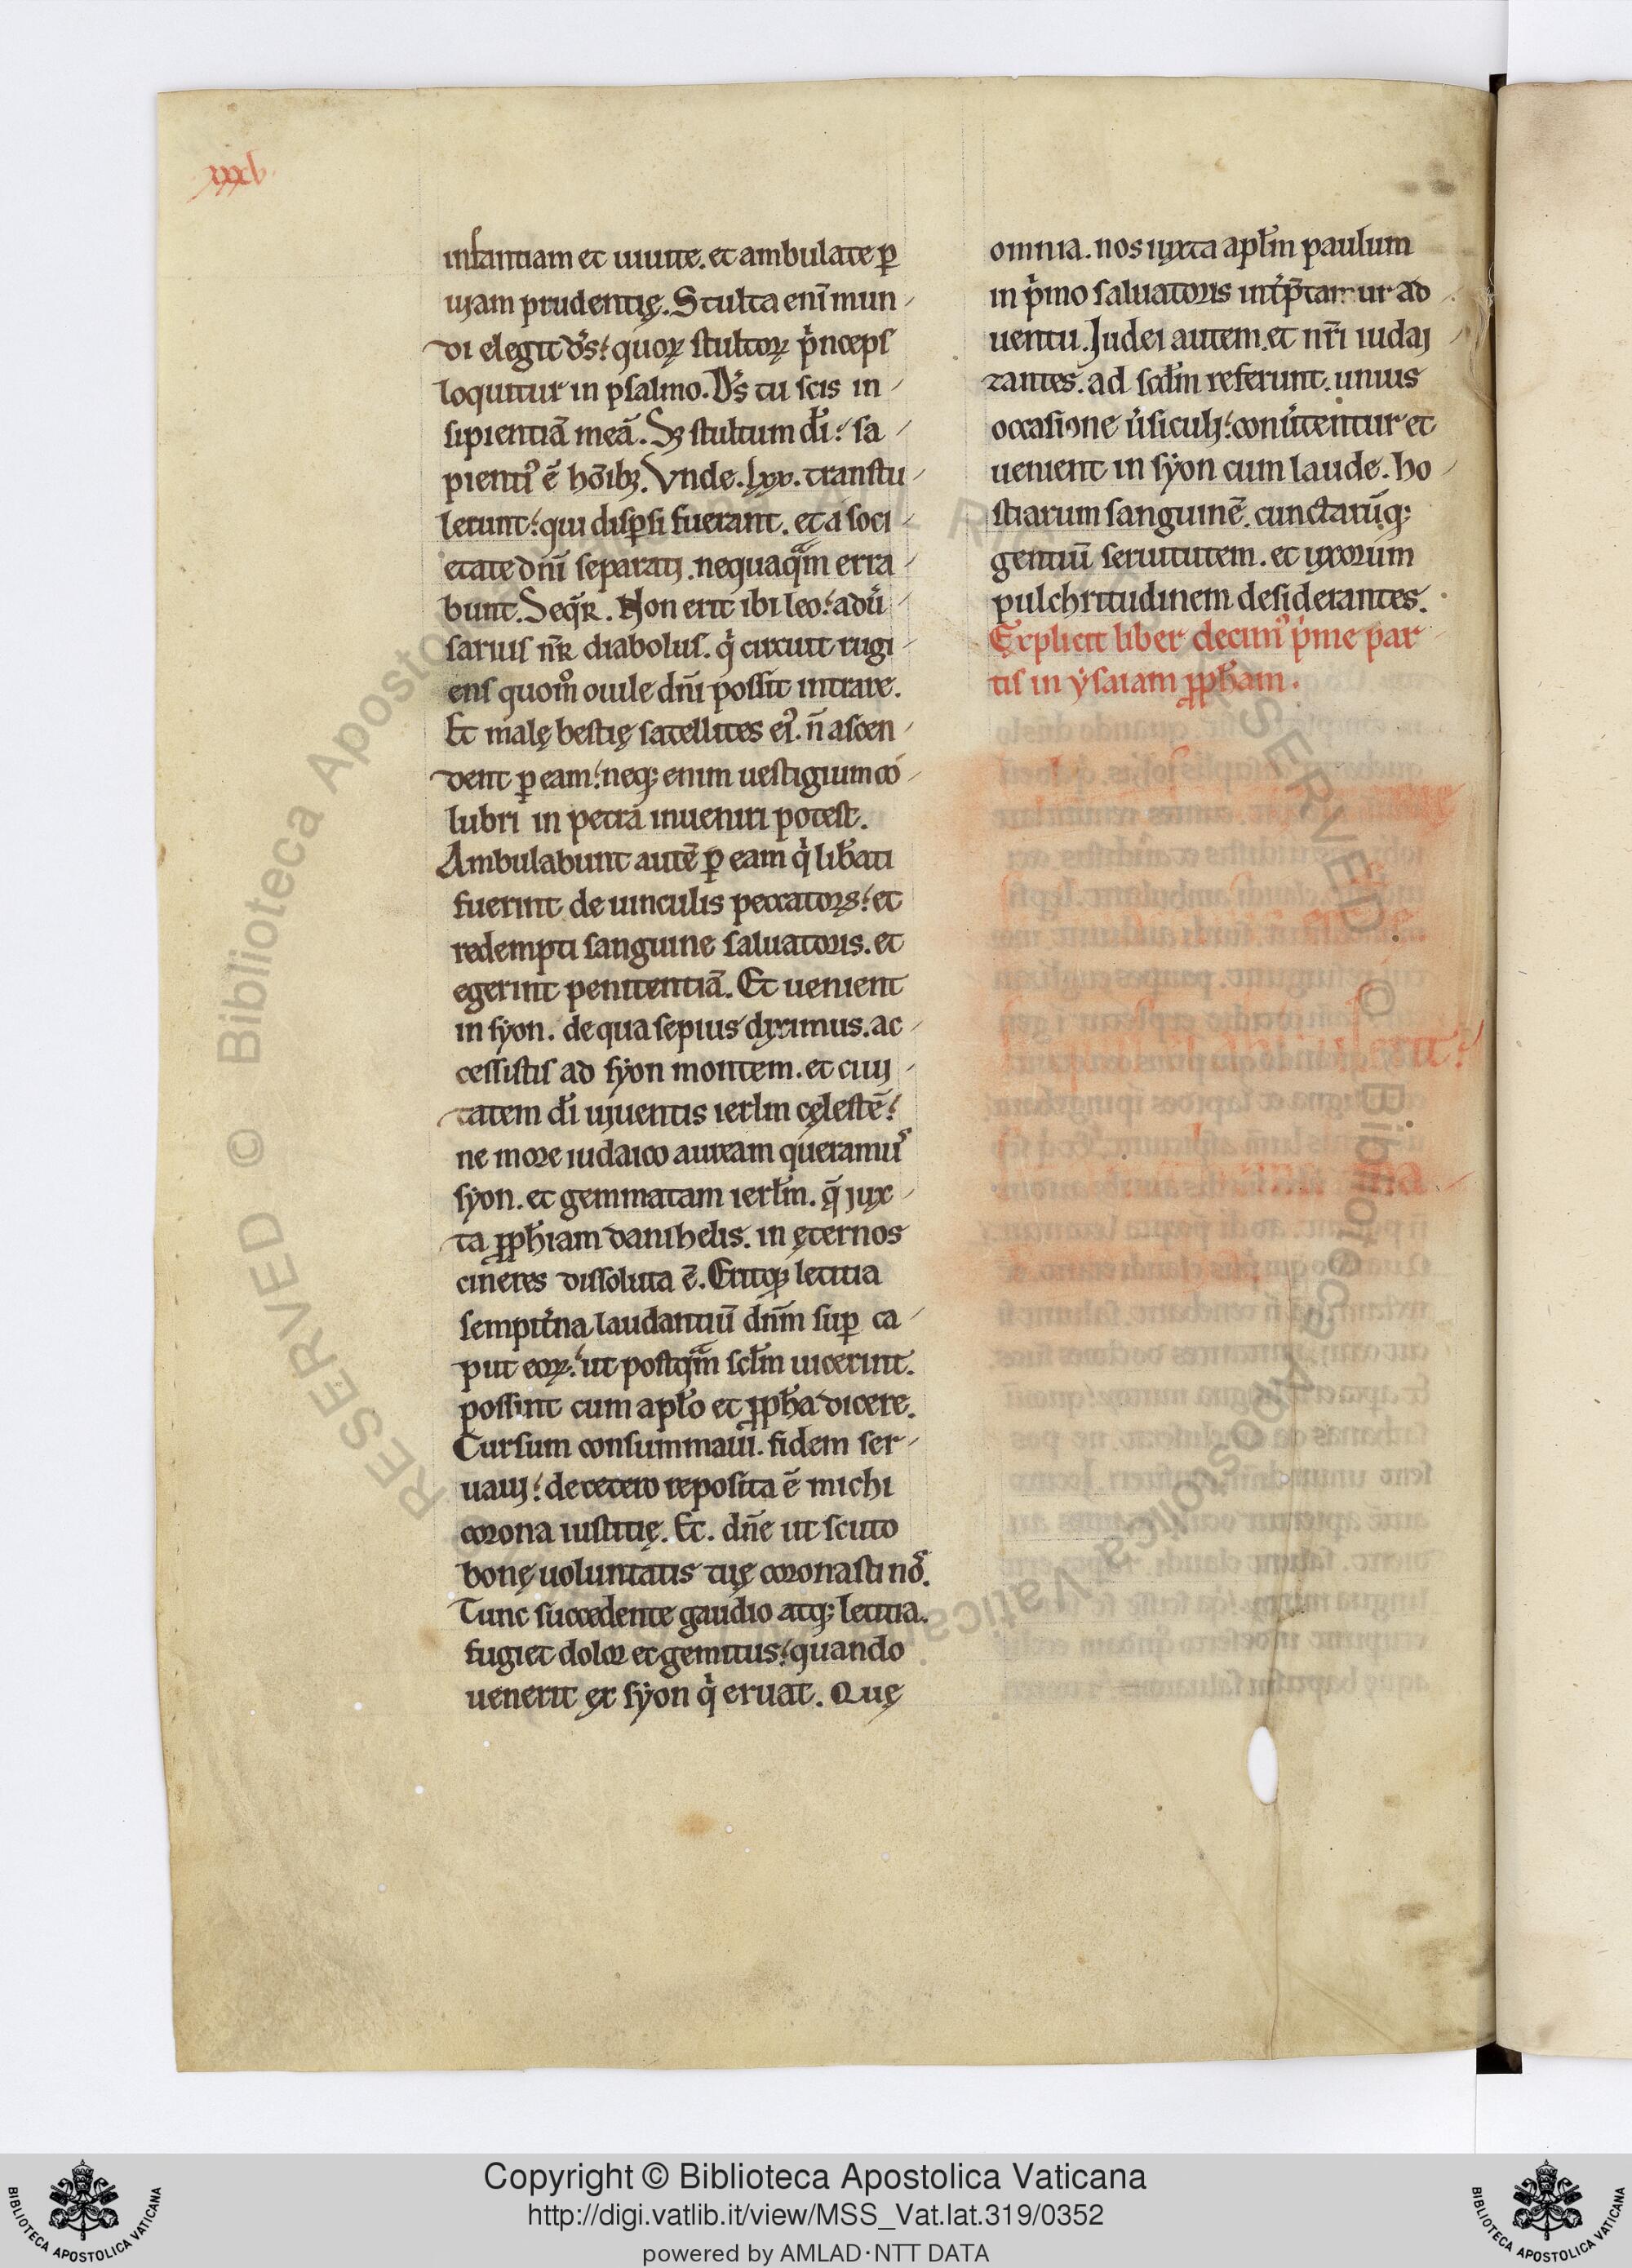 xxxv
infantiam et uiuite. et ambulate ꝑ
uiam prudentię. Stulta eni᷑ mun-
di elegit ds̄: quoꝝ stultoꝝ p̍nceps
loquitur in psalmo. Ds̄ tu scis in-
sipientiā meā. Sꝫ stultum di᷑: sa-
pienti᷒ ē hōibꝫ. Vnde .lxx. transtu-
lerunt: qui disꝑsi fuerant. et a soci-
etate dn̄i separati. nequaqᷓm erra-
bunt. Seqr̄. Non erit ibi leo: adu̍-
sarius nr̄ diabolus. q̍ circuit rugi-
ens quom̊ ouile dn̄i possit intrare.
Et malę bestię satellites ei᷒. n̄ ascen-
dent ꝑ eam: neqꝫ enim uestigium co-
lubri in petra inueniri potest.
Ambulabunt autē ꝑ eam q̍ lib̄ati
fuerint de uinculis peccatorꝫ: et
redempti sanguine saluatoris. et
egerint penitentiā. Et uenient
in syon. de qua sepius diximus. ac-
cessistis ad syon montem. et ciui-
tatem di᷑ uiuentis ierlm cęlestē:
ne more iudaico auream queramu᷒
syon. et gemmatam ierl̄m. q̄ iux-
ta ꝓph̄iam danihelis. in ęternos
cineres dissoluta ē. Eritqꝫ letitia
sempit̍na laudantiū dn̄m suꝑ ca-
put eoꝝ: ut postqᷓm scl̄m uicerint.
possint cum apl̄o et ꝓph̄a dicere.
Cursum consummaui. fidem ser-
uaui: de cetero reposita ē michi
corona iustitię. Et. dn̄e ut scuto
bonę uoluntatis tuę coronasti no᷒.
Tunc succedente gaudio atqꝫ letitia.
fugiet dolor et gemitus: quando
uenerit ex syon q̍ eruat. Quę
omnia. nos iuxta apl̄m paulum
in p̍mo saluatoris int̍p̄tamur ad-
uentu. Judei autem. et nr̄i iudai-
zantes. ad scd̄m referunt. unius
occasione u̍siculi: conu̍tentur et
uenient in syon cum laude. ho-
stiarum sanguinē. cunctarūqꝫ
gentiū seruitutem. et uxorum
pulchritudinem desiderantes.
Explicit liber decim᷒ p̍me par-
tis in ysaiam ꝓph̄am.
Copyright © Biblioteca Apostolica Vaticana
http://digi.vatlib.it/view/MSS_Vat.lat.319/0352
powered by AMLAD·NTT DATA
BIBLIOTECA APOSTOLICA VATICANA
BIBLIOTECA APOSTOLICA VATICANA